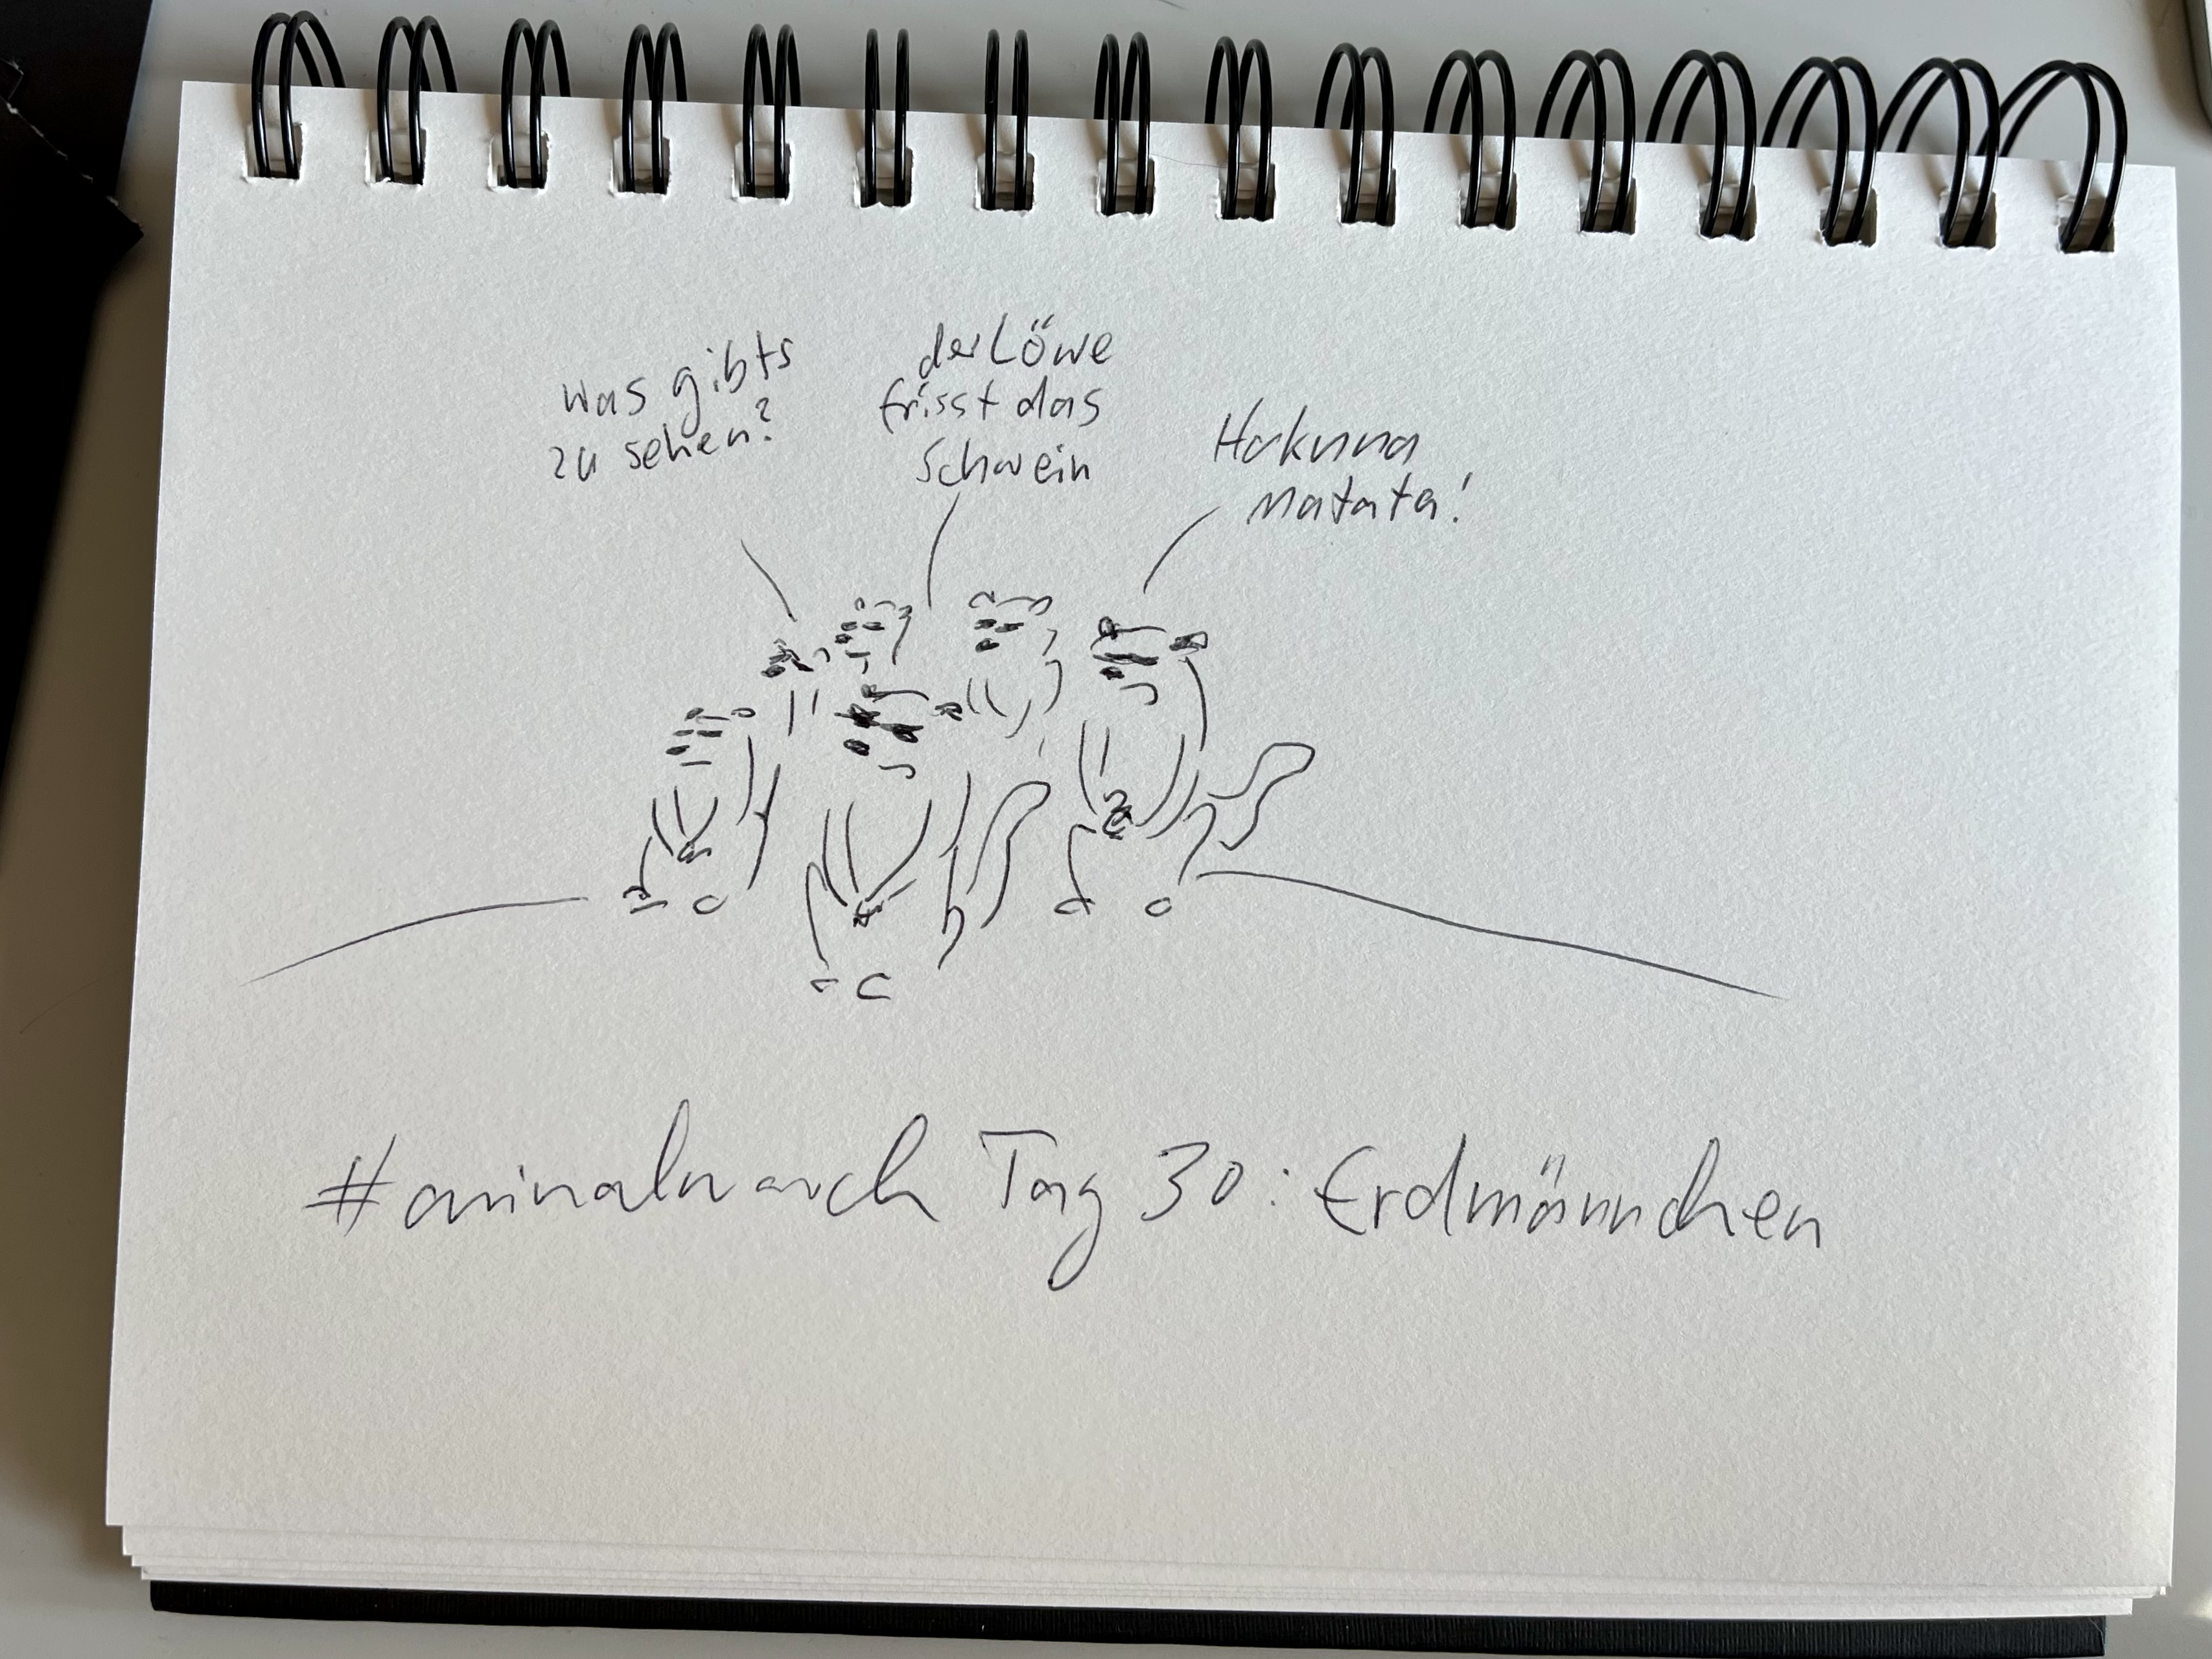 was gibts
zu sehen?
der Löwe
frisst das
Schwein
Hakuna
Matata!
#animalmarch Tag 30: Erdmännchen